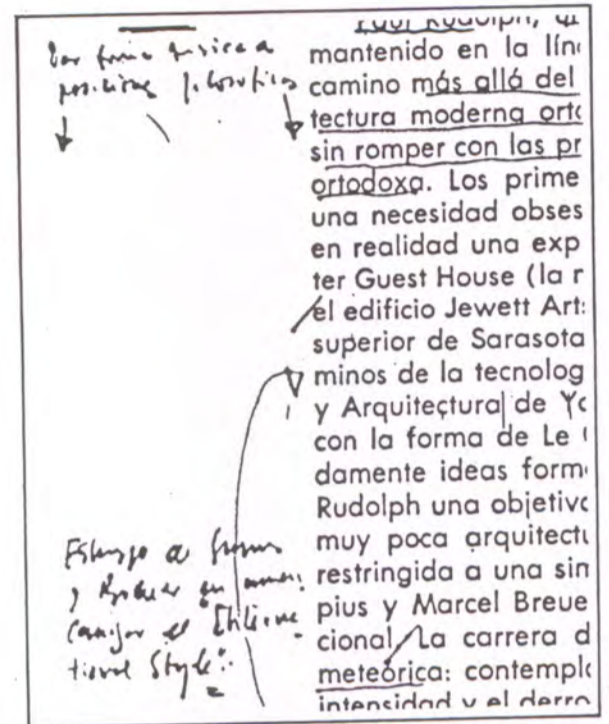 Paul Rudolph, q
mantenido en la lín
camino más allá del
tectura moderna orto
sin romper con las pr
ortodoxa. Los prime
una necesidad obses
en realidad una exp
ter Guest House (la r
el edificio Jewett Art
superior de Sarasota
minos de la tecnolog
y Arquitectura de Ya
con la forma de Le
damente ideas form
Rudolph una objetivo
muy poca arquitectu
restringida a una sin
pius y Marcel Breue
cional. La carrera d
meteórica: contempl
intensidad y el derro
dar forma física a
filosóficas
a
y
el
tional Style".